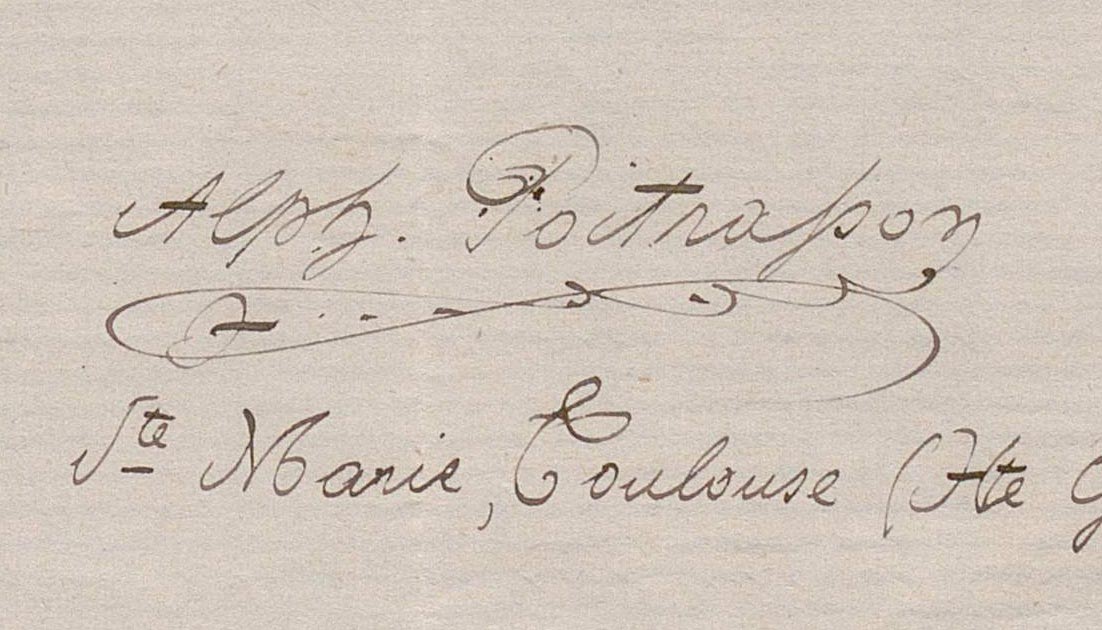 Alph. Poitrasson
Ste Marie, Toulouse (Hte G